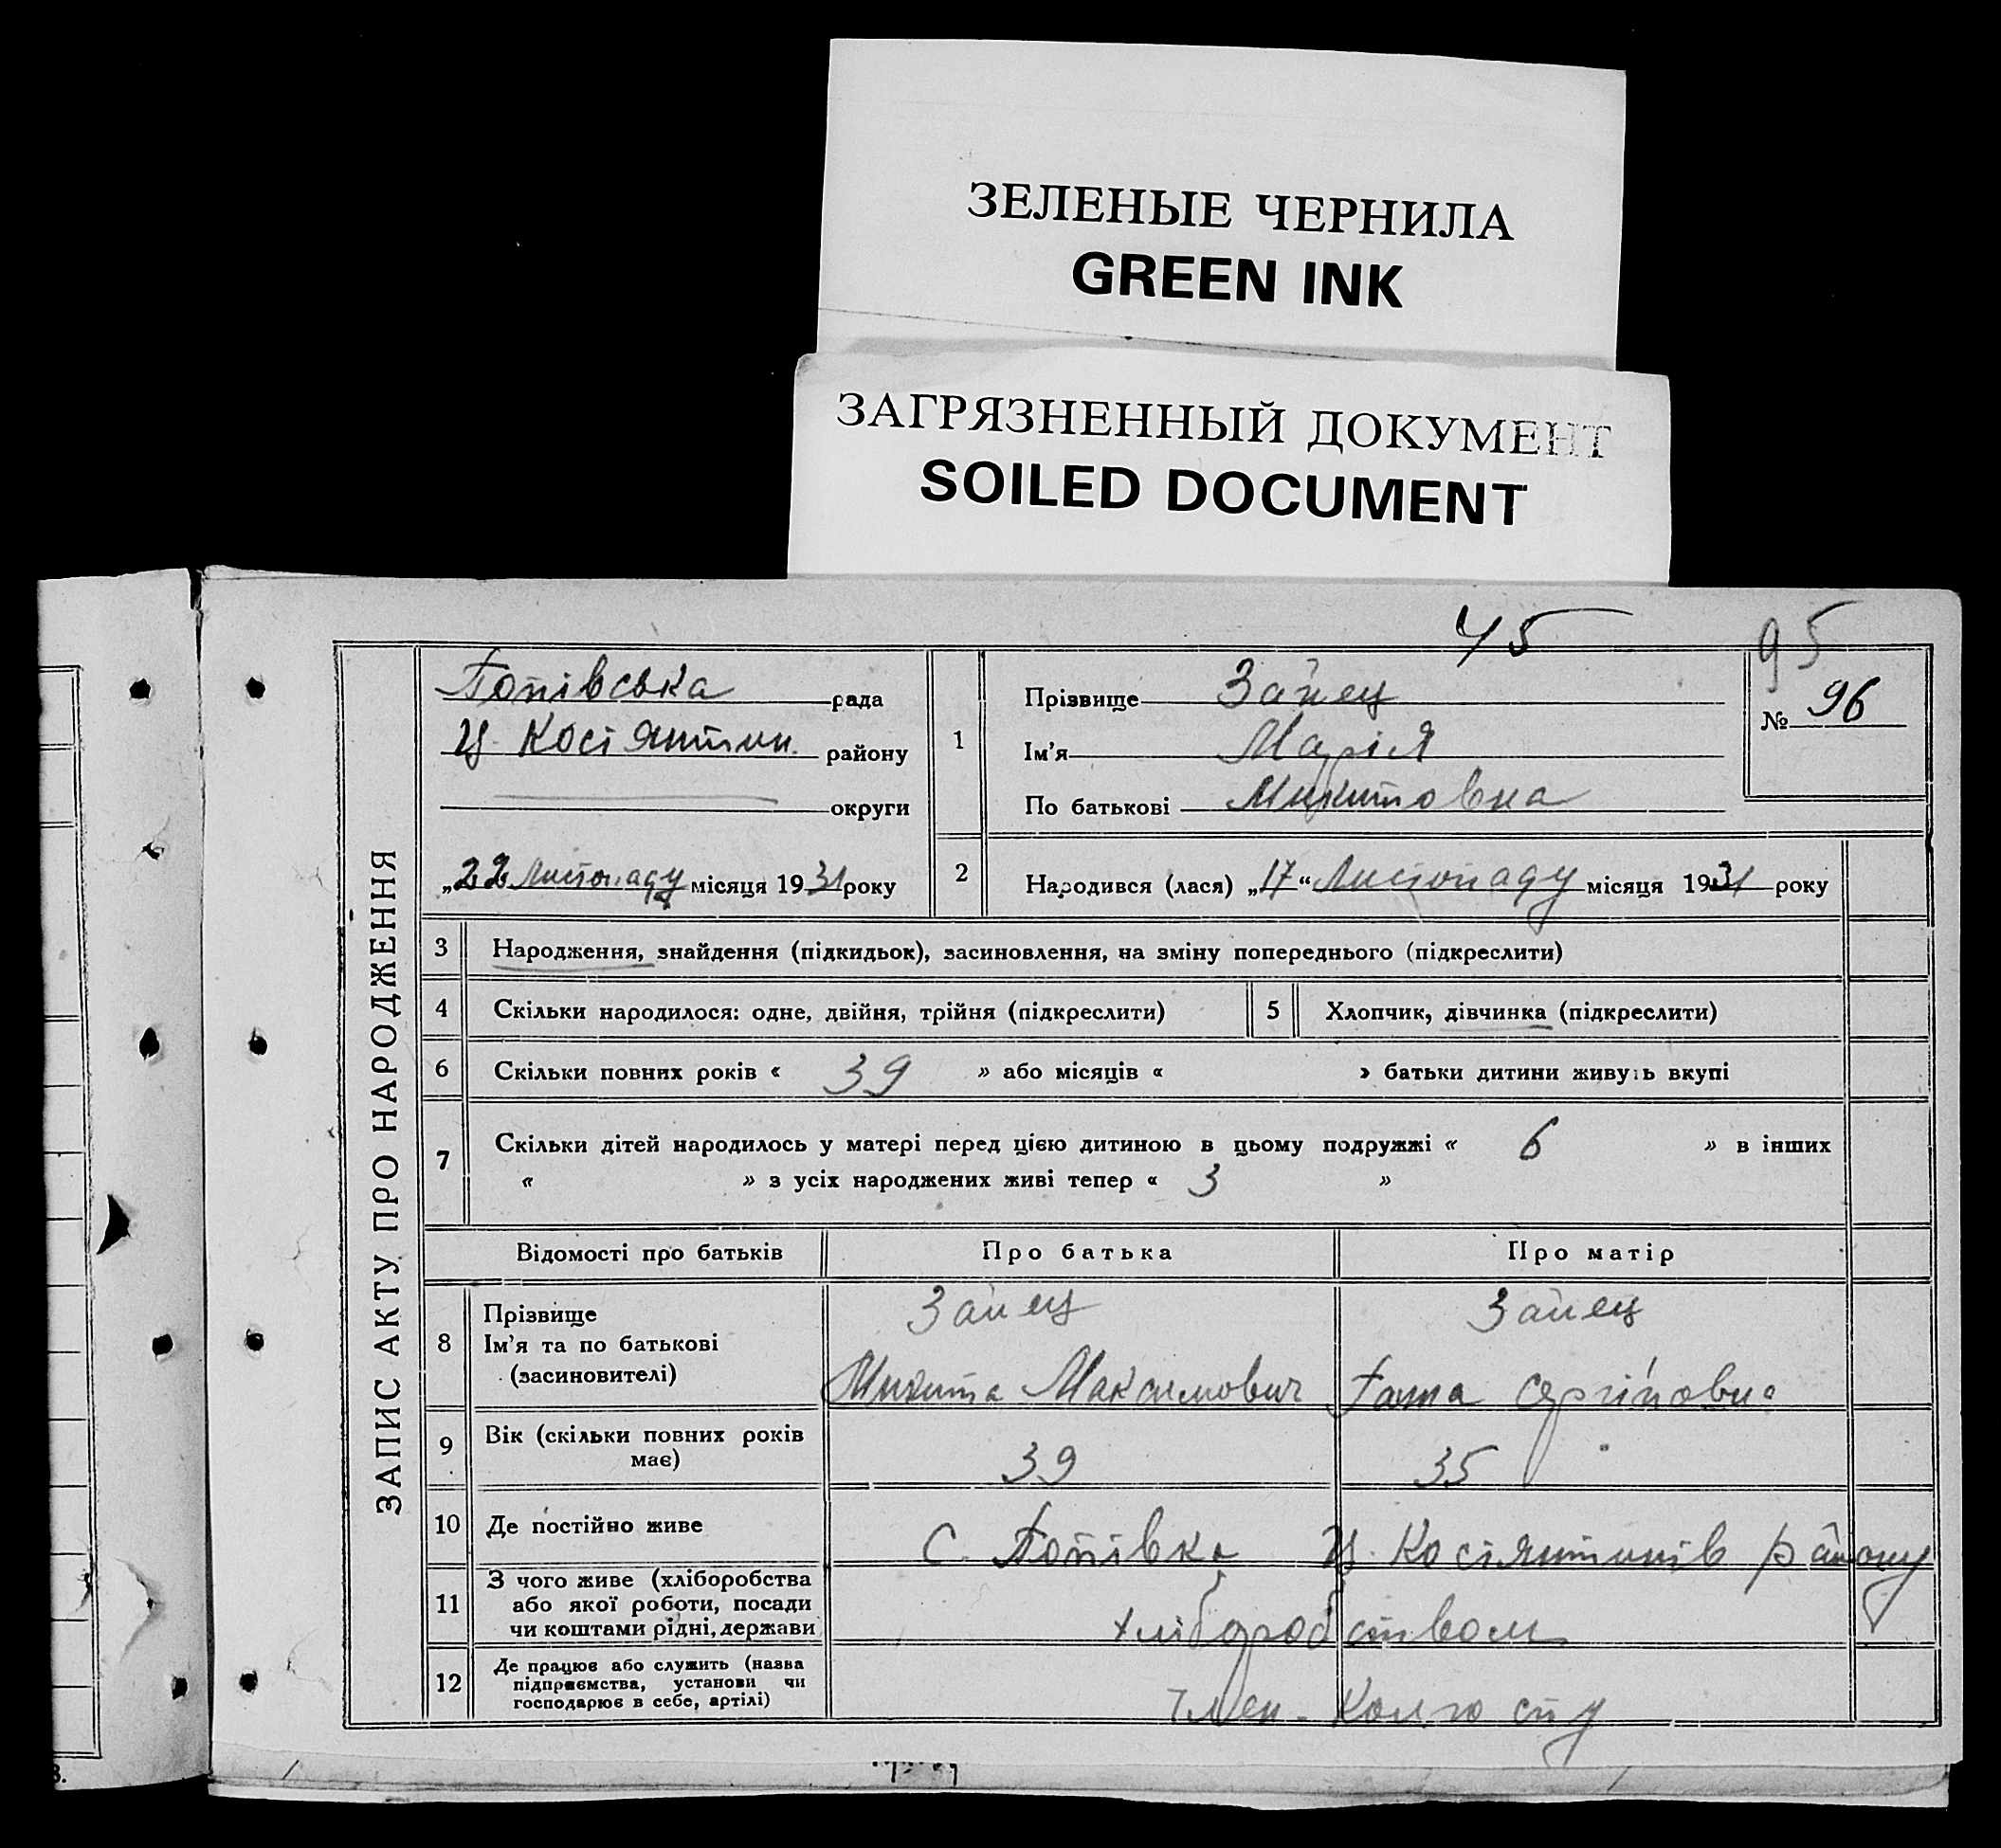 ЗЕЛЕНЫЕ ЧЕРНИЛА
GREEN INK
ЗАГРЯЗНЕННЫЙ ДОКУМЕНТ
SOILED DOCUMENT
45
95
ЗАПИС АКТУ ПРО НАРОДЖЕННЯ
Попівська рада
Ц. Косіянтин. району
округи
„22 Листопаду місяця 1931 року
1
Прізвище Заяец
Ім'я Марія
По батькові Микитовна
№ 96
2 Народився (лася) „17“ Листопаду місяця 1931 року
3 Народження, знайдення (підкидьок), засиновлення, на зміну попереднього (підкреслити)
4 Скільки народилося: одне, двійня, трійня (підкреслити) 5 Хлопчик, дівчинка (підкреслити)
6 Скільки повних років « 39 » або місяців « » батьки дитини живуть вкупі
7 Скільки дітей народилось у матері перед цією дитиною в цьому подружжі « 6 » в інших
« » з усіх народжених живі тепер « 3 »
Відомості про батьків Про батька Про матір
8 Прізвище
Ім'я та по батькові
(засиновителі)
Заяец Заяец
Микита Максимович Гапа Сергіповна
9 Вік (скільки повних років
має)
39 35
10 Де постійно живе С. Попівка Ц. Косіянтинів району
11 З чого живе (хліборобства
або якої роботи, посади
чи коштами рідні, держави
хліборобством
12 Де працює або служить (назва
підприємства, установи чи
господарює в себе, артілі)
Член - Колгоспу